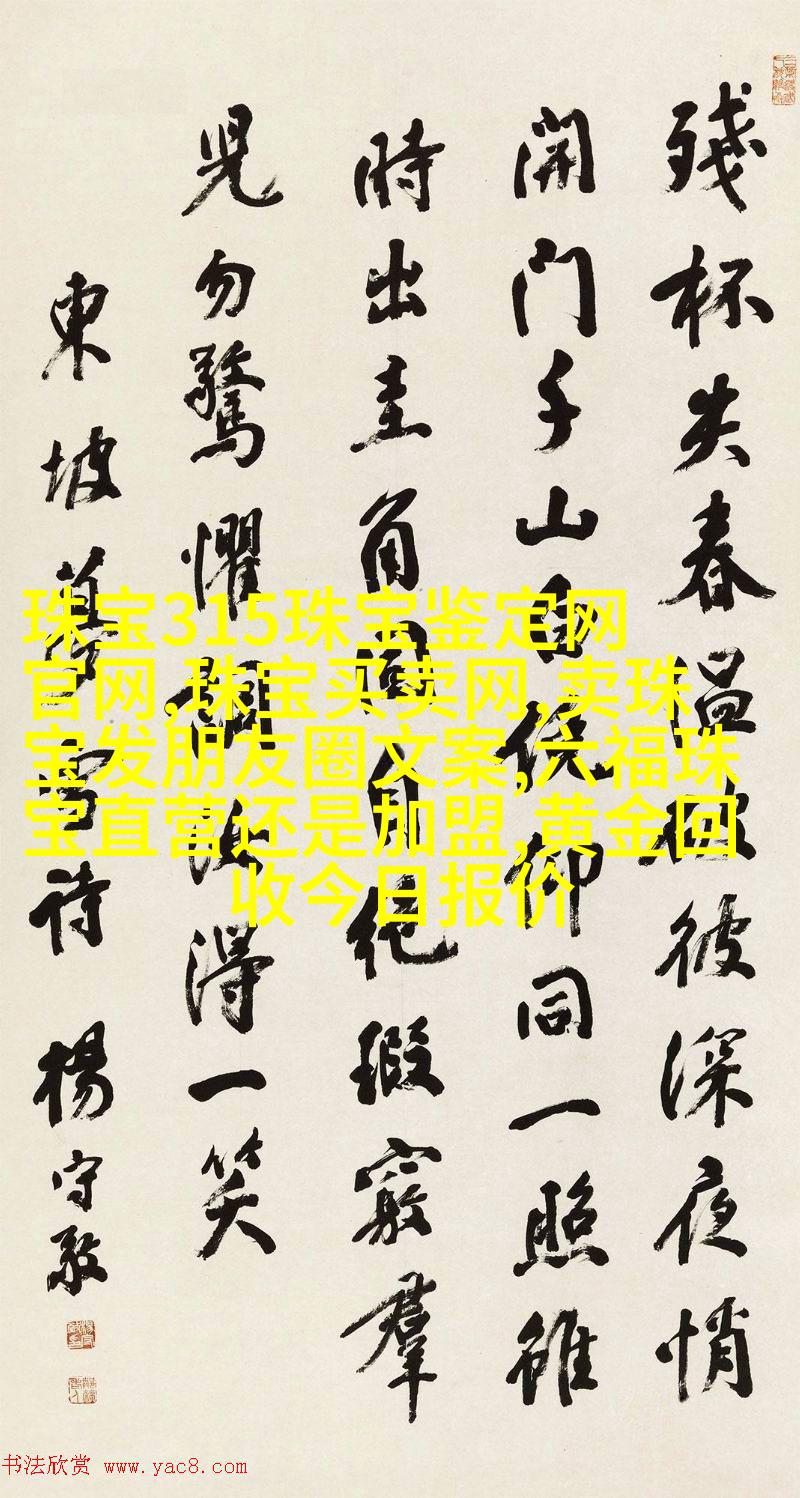 殘杯失春温破彼深夜悄
開门千山白俯仰同一照雖
時出圭角固自絕瑕竅羣
兒勿驚懼調汝得一笑
東坡雪詩 楊守敬
珠宝315珠宝鉴定网
官网,珠宝买卖网,卖珠
宝发朋友圈文案,六福珠
宝直营还是加盟,黄金回
收今日报价
书法欣赏 www.yac8.com